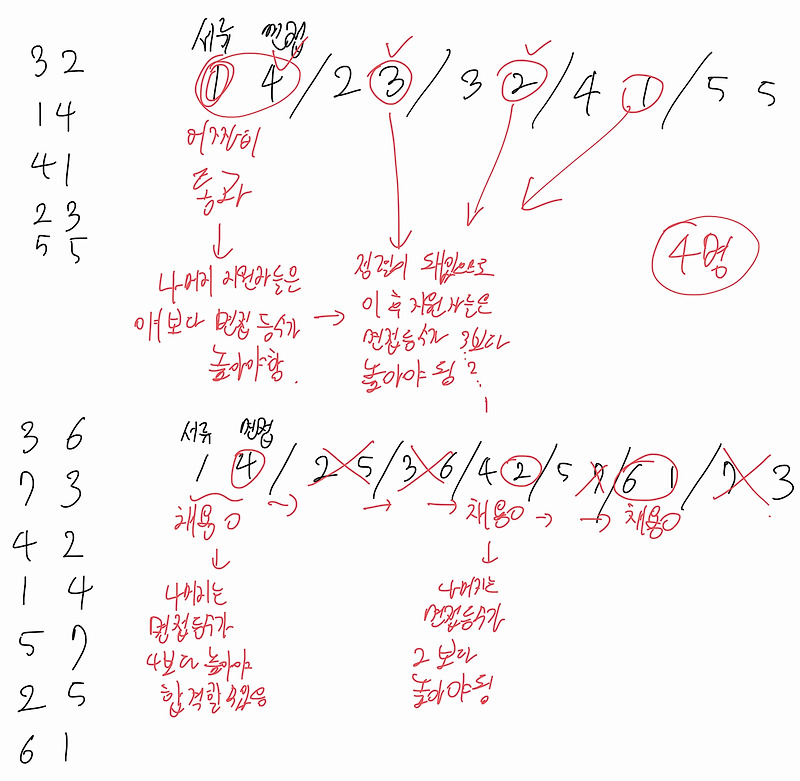 3 2
1 4
4 1
2 3
5 5
서류 면접
1 4 / 2 3 / 3 2 / 4 1 / 5 5
어차피
통과
나머지 지원자들은
얘보다 면접 등수가
높아야함.
점점이 돼있으로
이 후 지원자들은
면접등수가 3보다
높아야 됨 2
1
4명
3 6
7 3
4 2
1 4
5 7
2 5
6 1
서류 면접
1 4 / 2 5 / 3 6 / 4 2 / 5 7 / 6 1 / 7 3
채용 O
채용O
채용O
나머지는
면접등수가
4보다 높아야
합격할 수있음
나머지는
면접등수가
2 보다
높아야 됨